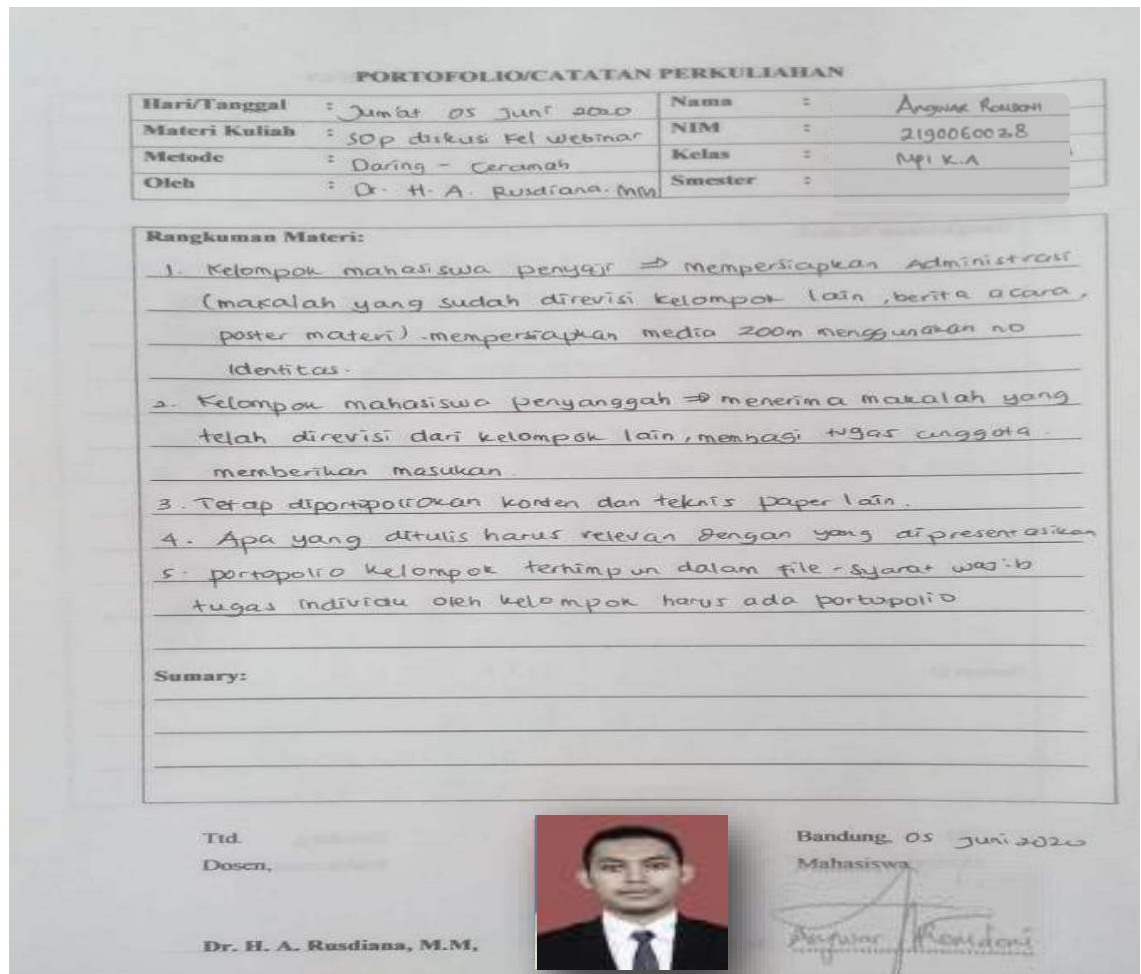 PORTOFOLIO/CATATAN PERKULIAHAN
Hari/Tanggal : Jum'at 05 Juni 2020 Nama : Angwar Romdoni
Materi Kuliah : SOP diskusi Kel Webinar NIM : 2190060028
Metode : Daring - Ceramah Kelas : MPI K.A
Oleh : Dr. H. A. Rusdiana. MM Smester :
Rangkuman Materi:
1. Kelompok mahasiswa penyaji ⇒ mempersiapkan Administrasi
(makalah yang sudah direvisi kelompok lain, berita acara,
poster materi) - mempersiapkan media zoom menggunakan no
Identitas.
2. Kelompok mahasiswa penyanggah ⇒ menerima makalah yang
telah direvisi dari kelompok lain, membagi tugas anggota.
memberikan masukan.
3. Tetap diportopoliokan konten dan teknis paper lain.
4. Apa yang ditulis harus relevan dengan yang dipresentasikan
5. portopolio kelompok terhimpun dalam file - syarat wajib
tugas individu oleh kelompok harus ada portopolio
Sumary:
Ttd.
Dosen,
Dr. H. A. Rusdiana, M.M,
Bandung, 05 Juni 2020
Mahasiswa
Angwar Romdoni